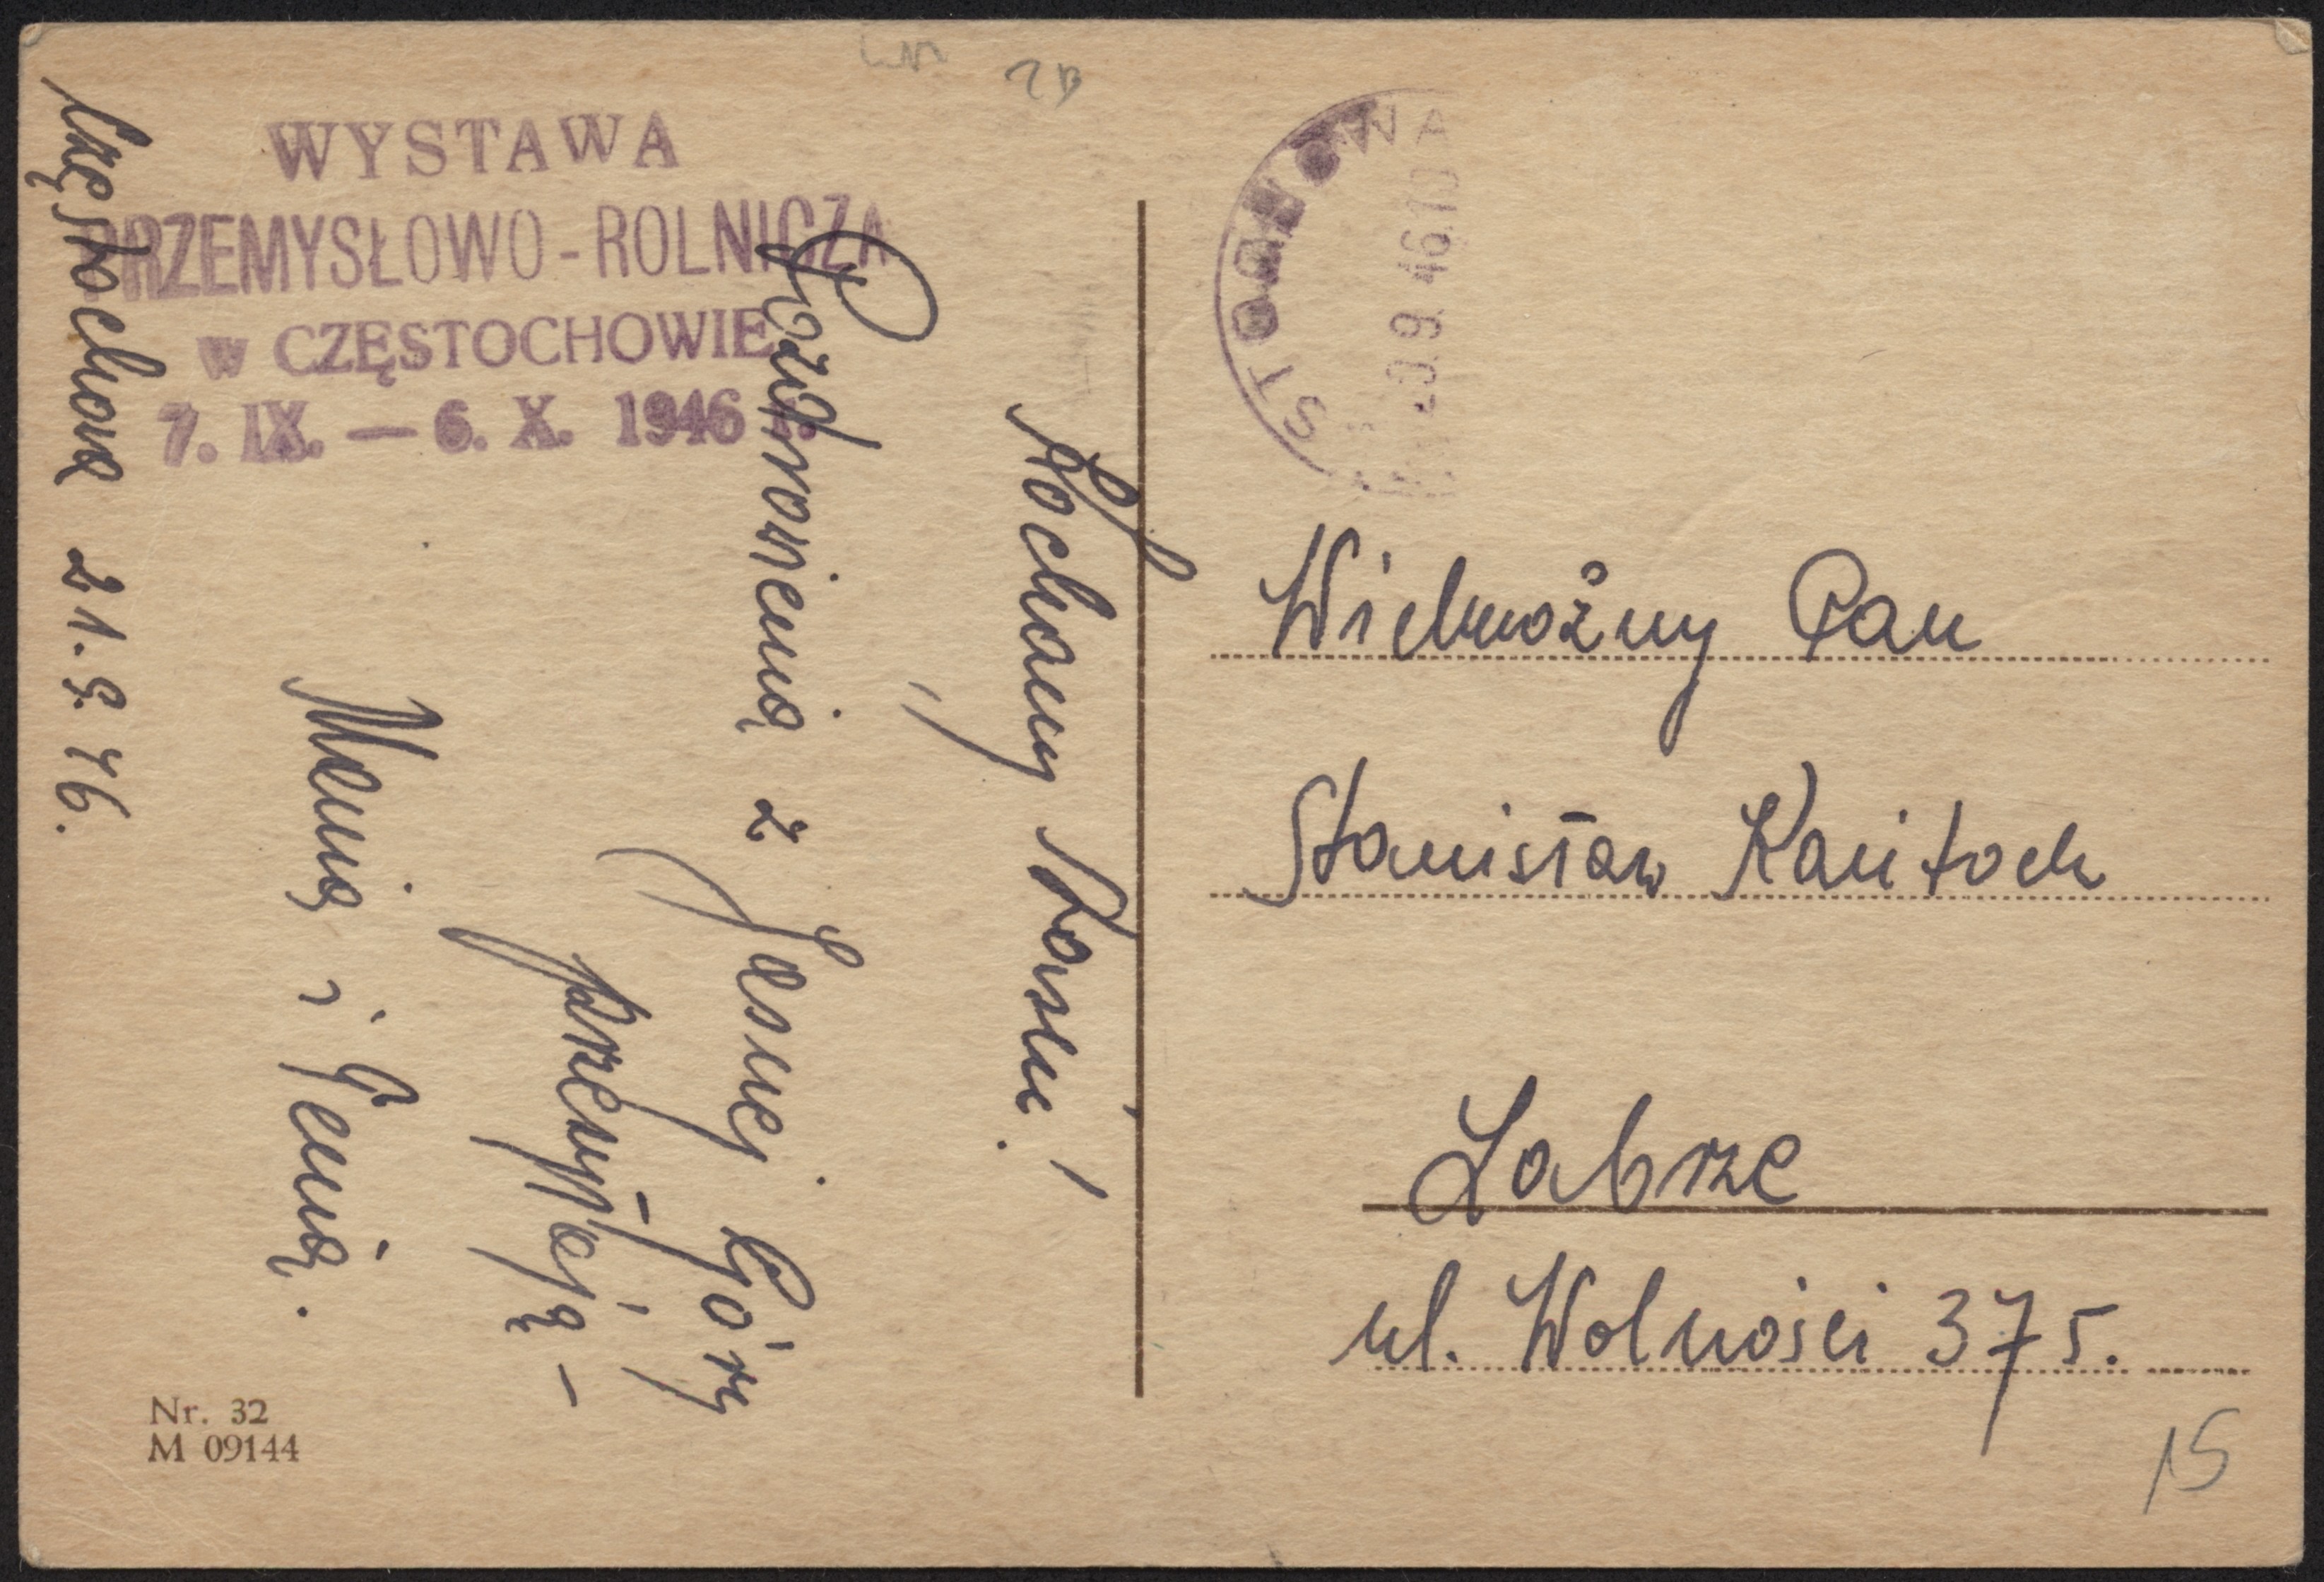 WYSTAWA
PRZEMYSŁOWO-ROLNICZA
w CZĘSTOCHOWIE
7. IX. — 6. X. 1946 r.
Częstochowa 21.9.46.
Kochany Stasiu!
Pozdrowienia z Jasnej Góry
przesyłają -
Menia i Genia.
Nr. 32
M 09144
9.46.10
Wielmożny Pan
Stanisław Kanitoch
Zabrze
ul. Wolności 375.
15